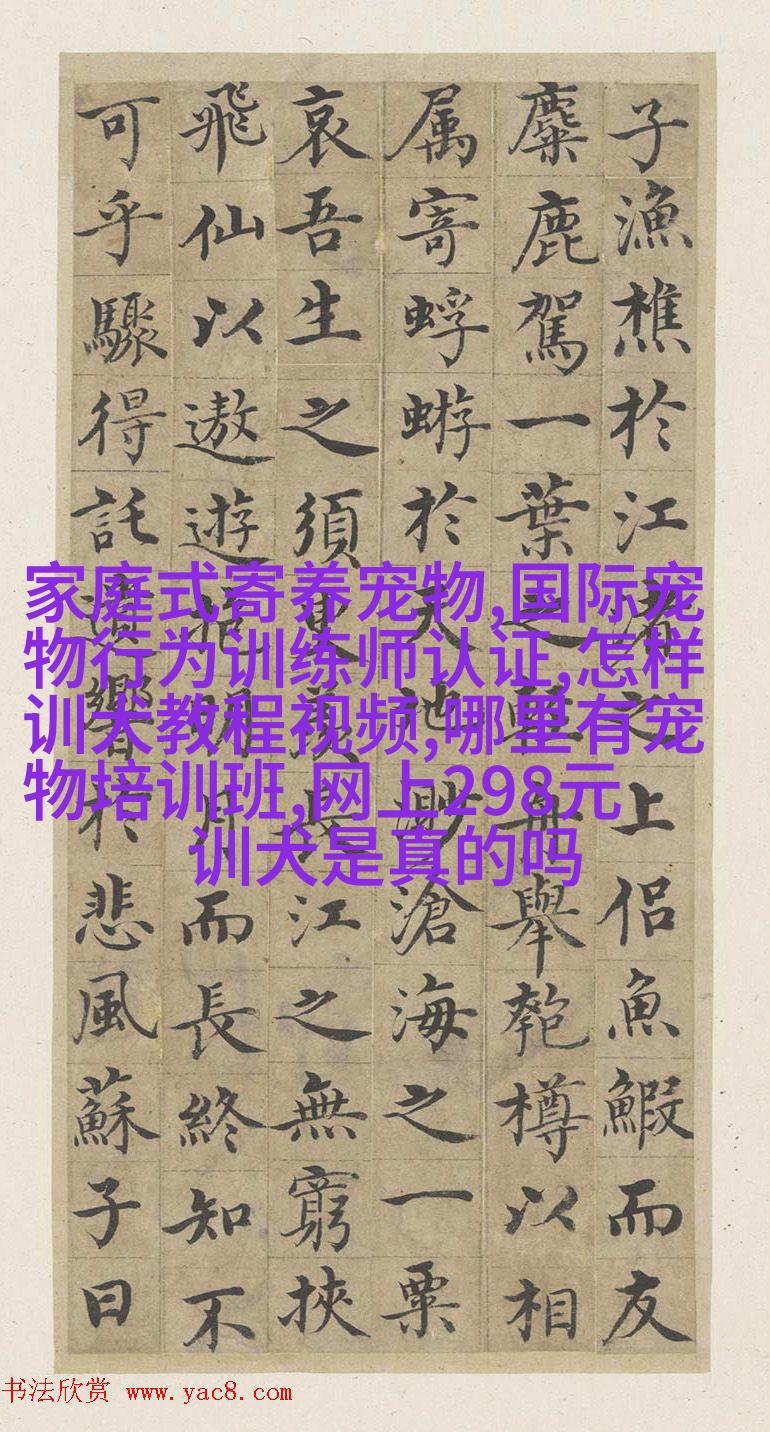 子漁樵於江渚之上侶魚鰕而友
麋鹿駕一葉之舟舉匏樽以相
属寄蜉蝣於天地渺滄海之一粟
哀吾生之須臾羨長江之無窮挾
飛仙以遨遊抱明月而長終知不
可乎驟得託遺響於悲風蘇子曰
家庭式寄养宠物,国际宠
物行为训练师认证,怎样
训犬教程视频,哪里有宠
物培训班,网上298元
训犬是真的吗
书法欣赏 www.yac8.com